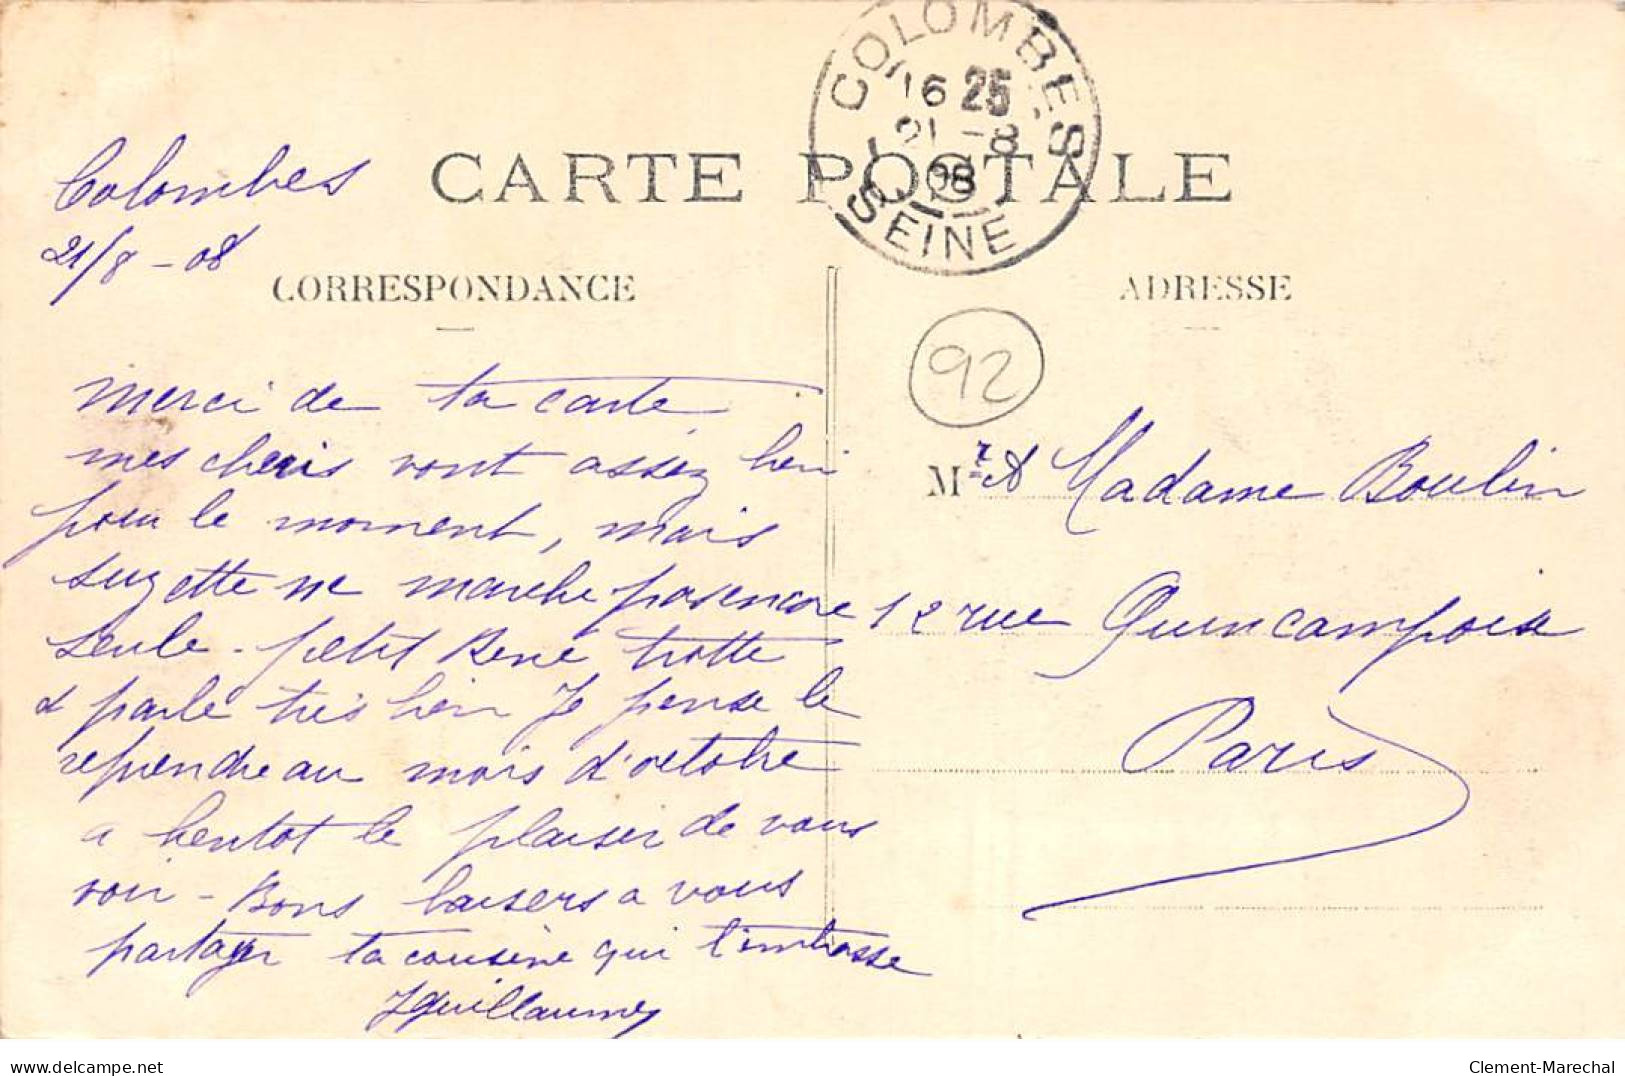 COLOMBES
16 25
21 - 8
08
SEINE
CARTE POSTALE
Colombes
21/8 - 08
CORRESPONDANCE
ADRESSE
92
Merci de ta carte
mes cheris vont assez bien
pour le moment, mais
Suzette ne marche pas encore
seule - petit René trotte
& parle très bien Je pense le
reprendre au mois d'octobre
a bentot le plaisir de vous
voir - Bons baisers a vous
partager ta cousine qui t'embrasse
JGuillaume
Mr & Madame Boulin
12 rue Quincampoix
Paris
delcampe.net
Clement-Marechal